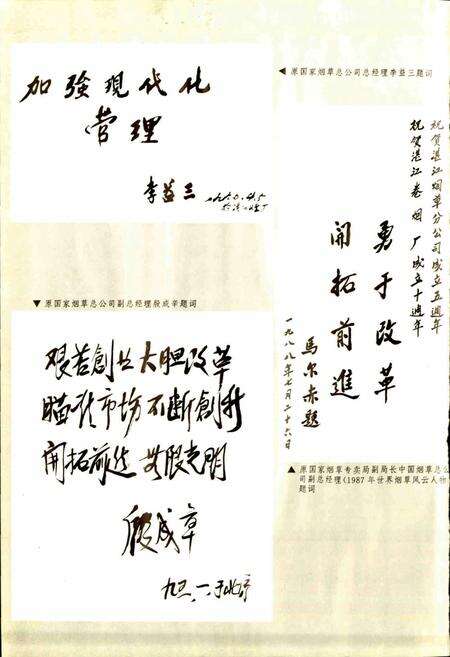 加強現代化
管理
李益三
◀ 原国家烟草总公司总经理李益三题词
祝贺湛江烟草分公司成立五週年
祝贺湛江卷烟厂成立十週年
勇于改革
開拓前進
馬尔赤题
一九八八年七月二十六日
▲ 原国家烟草专卖局副局长中国烟草总公
司副总经理(1987年世界烟草风云人物
题词
▼ 原国家烟草总公司副总经理殷成章题词
艰苦創业大胆改革
瞄准市场不断創新
開拓前进
殷成章